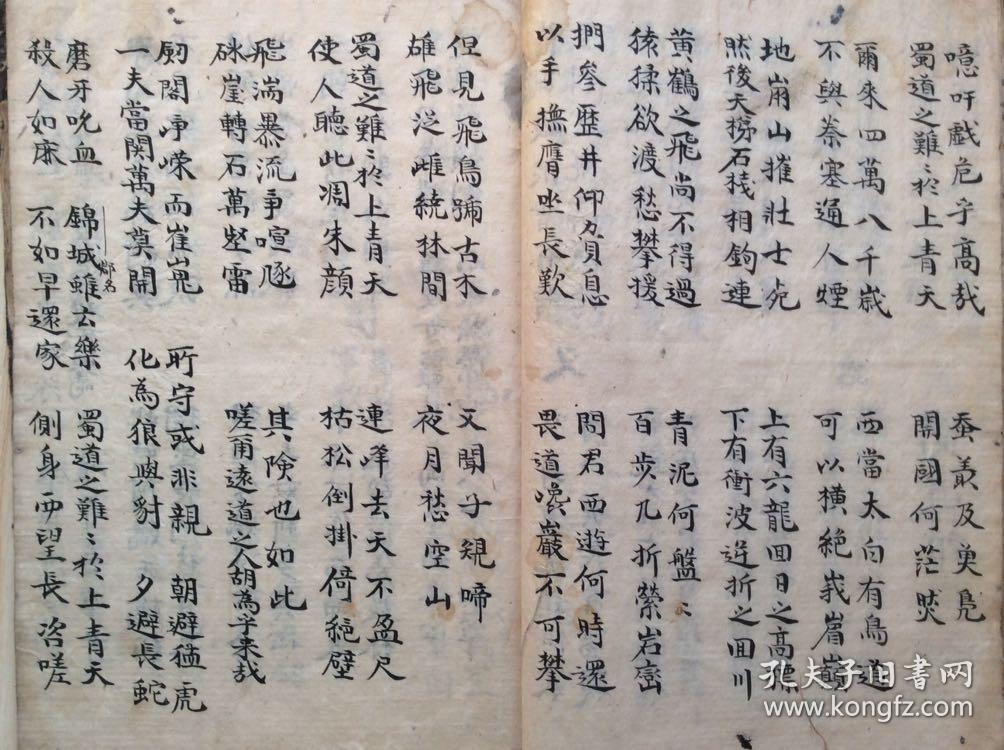 噫吁戲危乎高哉
蜀道之難〻於上青天
蚕叢及魚鳧
開國何茫然
爾來四萬八千歲
不與秦塞通人煙
西當太白有鳥道
可以橫絕峩眉巔
地崩山摧壯士死
然後天梯石棧相鉤連
上有六龍回日之高標
下有衝波逆折之回川
黃鶴之飛尚不得過
猿猱欲渡愁攀援
青泥何盤〻
百步九折縈岩巒
捫參歷井仰負息
以手撫膺坐長歎
問君西遊何時還
畏道巉巖不可攀
但見飛鳥號古木
雄飛從雌繞林間
又聞子規啼
夜月愁空山
蜀道之難〻於上青天
使人聽此凋朱顏
連峰去天不盈尺
枯松倒掛倚絕壁
飛湍暴流爭喧豗
砯崖轉石萬壑雷
其險也如此
嗟爾遠道之人胡為乎來哉
劒閣崢嶸而崔嵬
一夫當関萬夫莫開
所守或非親
化為狼與豺
朝避猛虎
夕避長蛇
磨牙吮血
殺人如麻
錦城雖云樂
不如早還家
蜀道之難〻於上青天
側身西望長咨嗟
孔夫子旧书网
www.kongfz.com